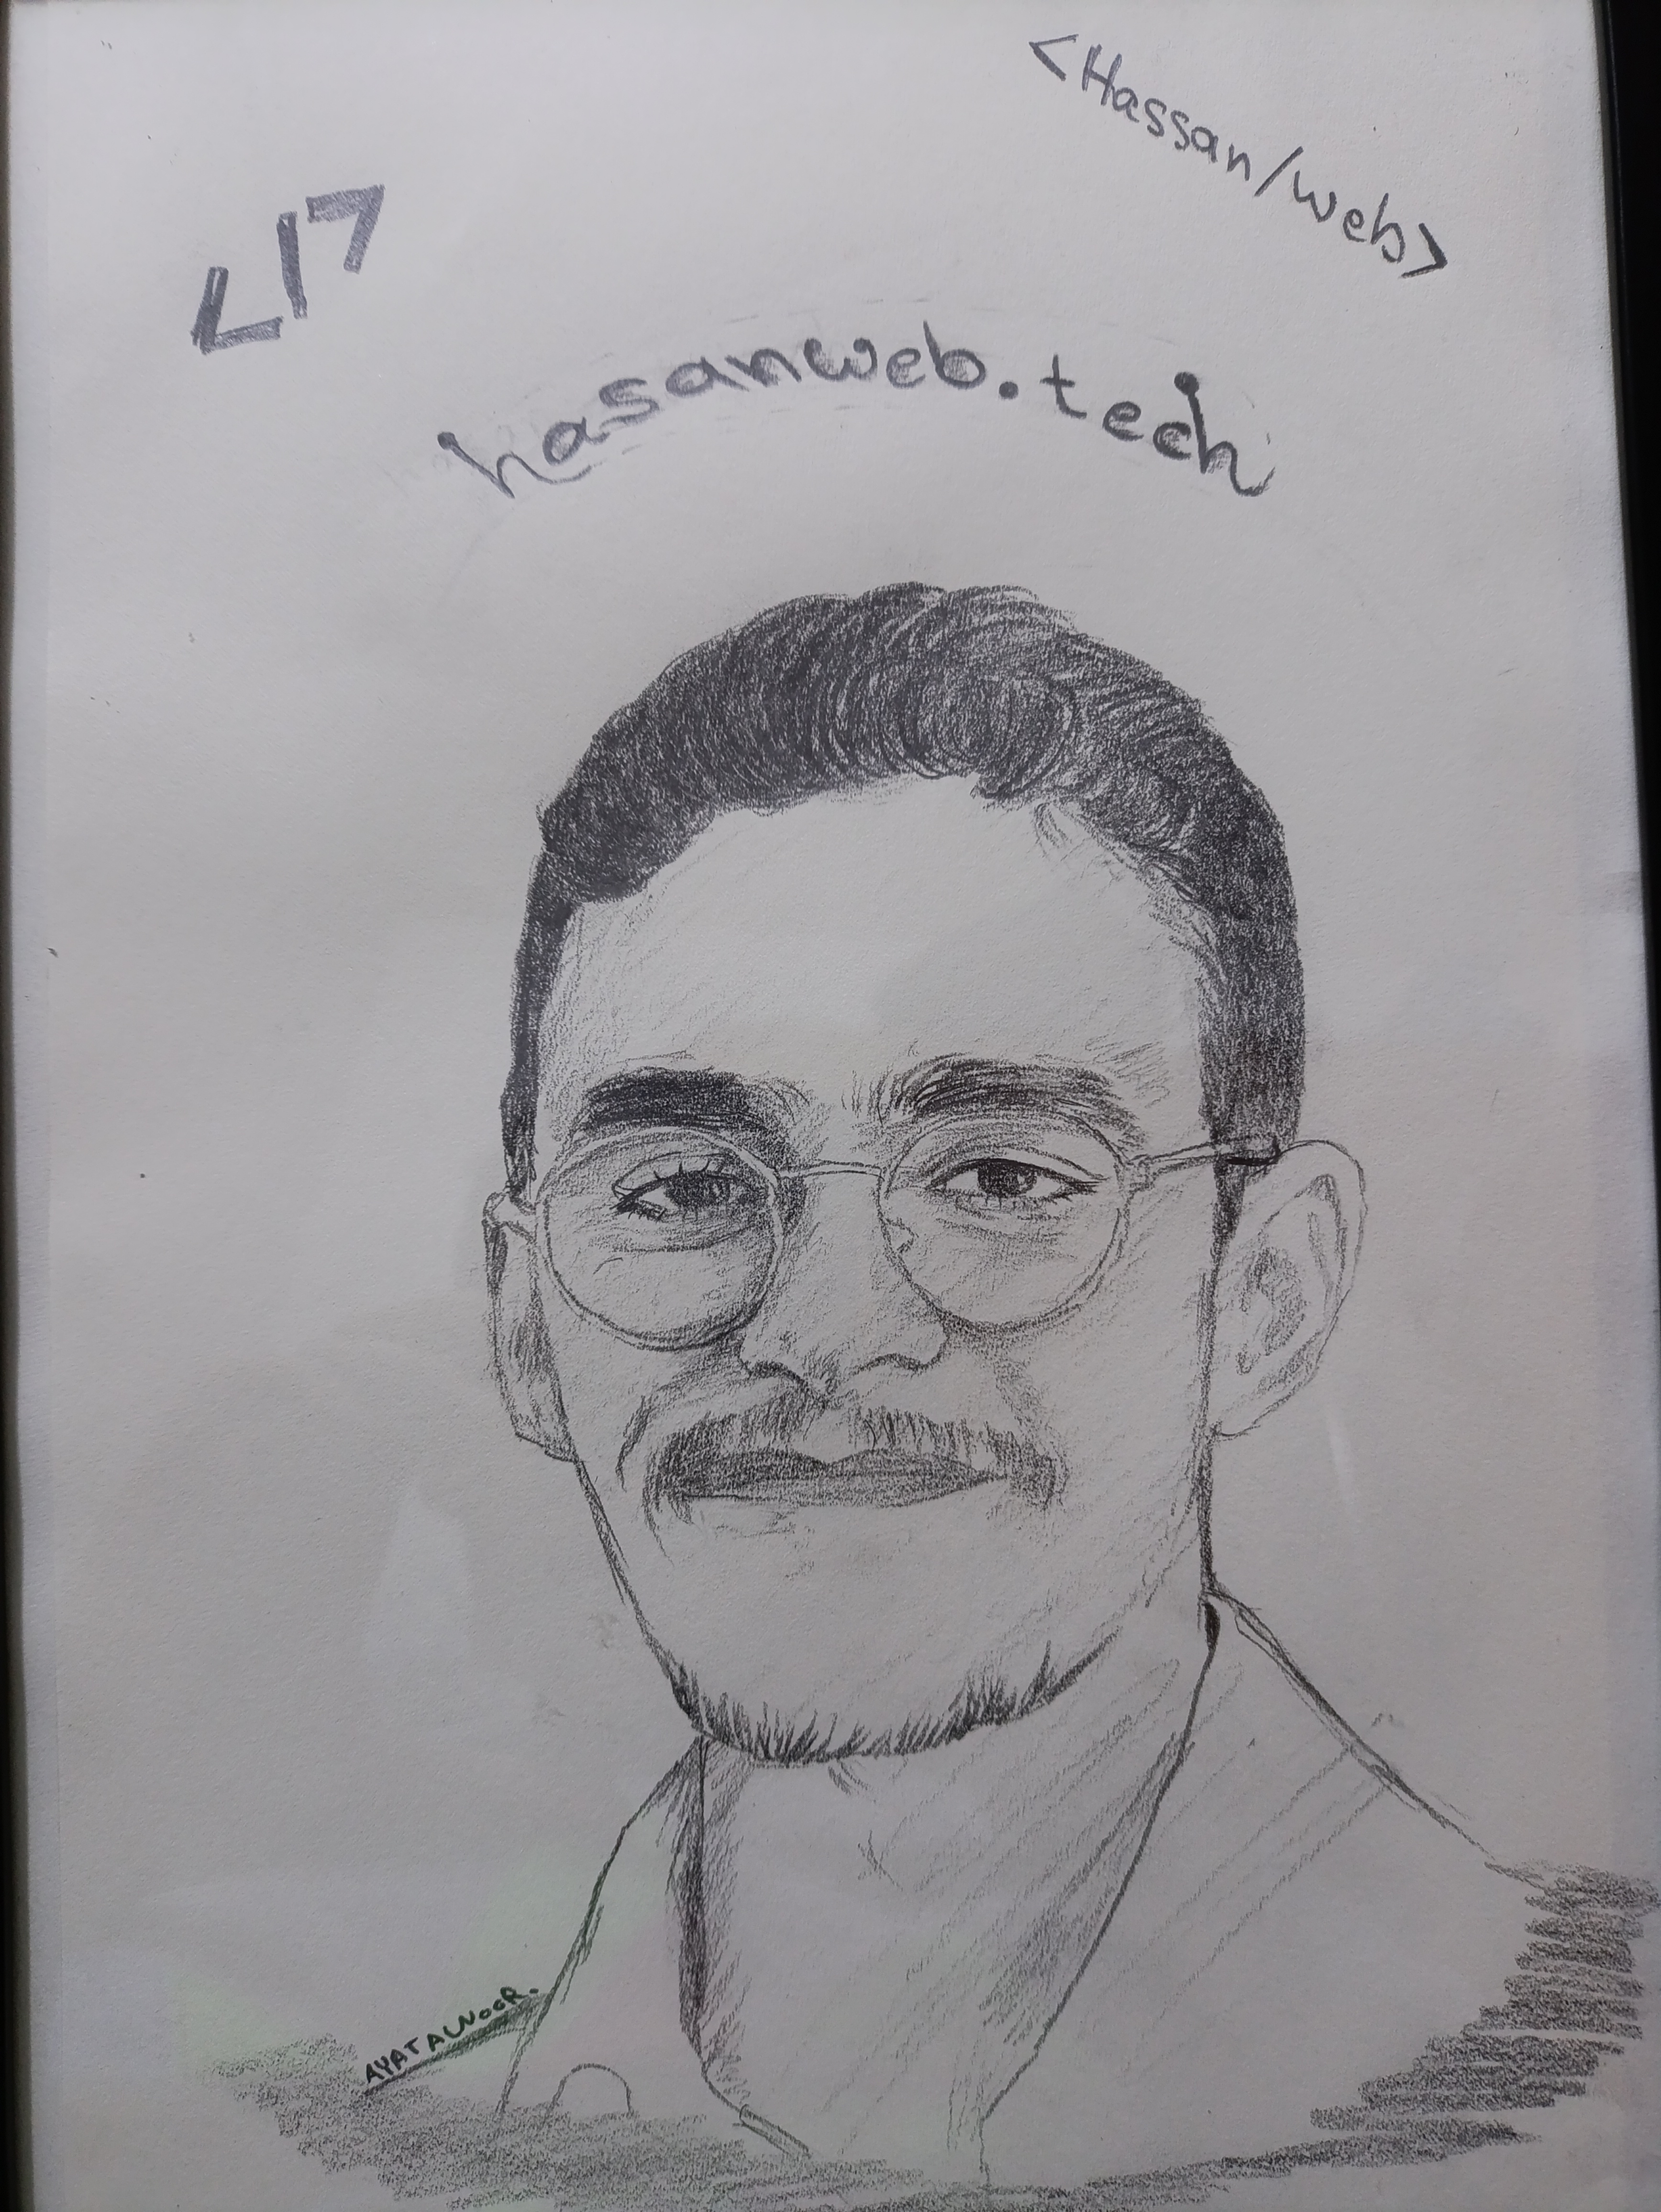 <Hassan/web>
</>
hasanweb.tech
AYATALNOOR.